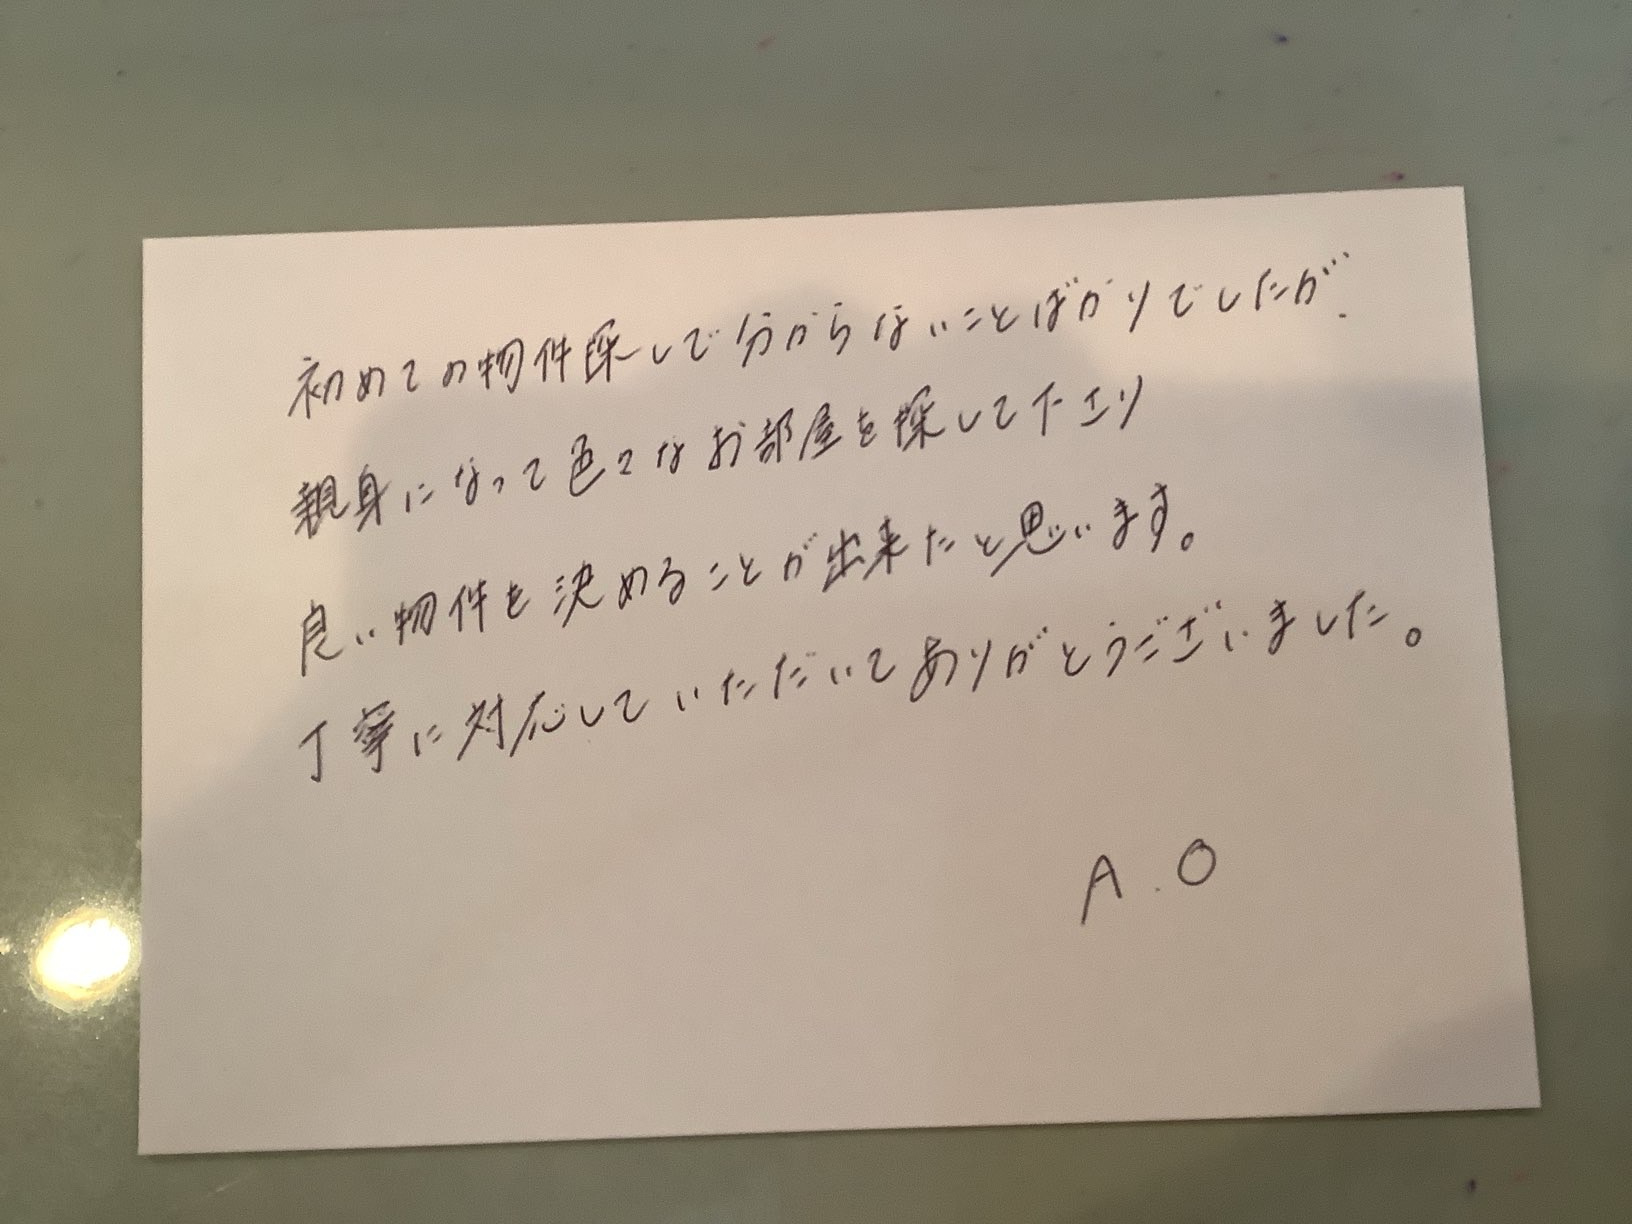 初めての物件探しで分からないことばかりでしたが、
親身になって色々なお部屋を探して下さり
良い物件を決めることが出来たと思います。
丁寧に対応していただいてありがとうございました。
A.O